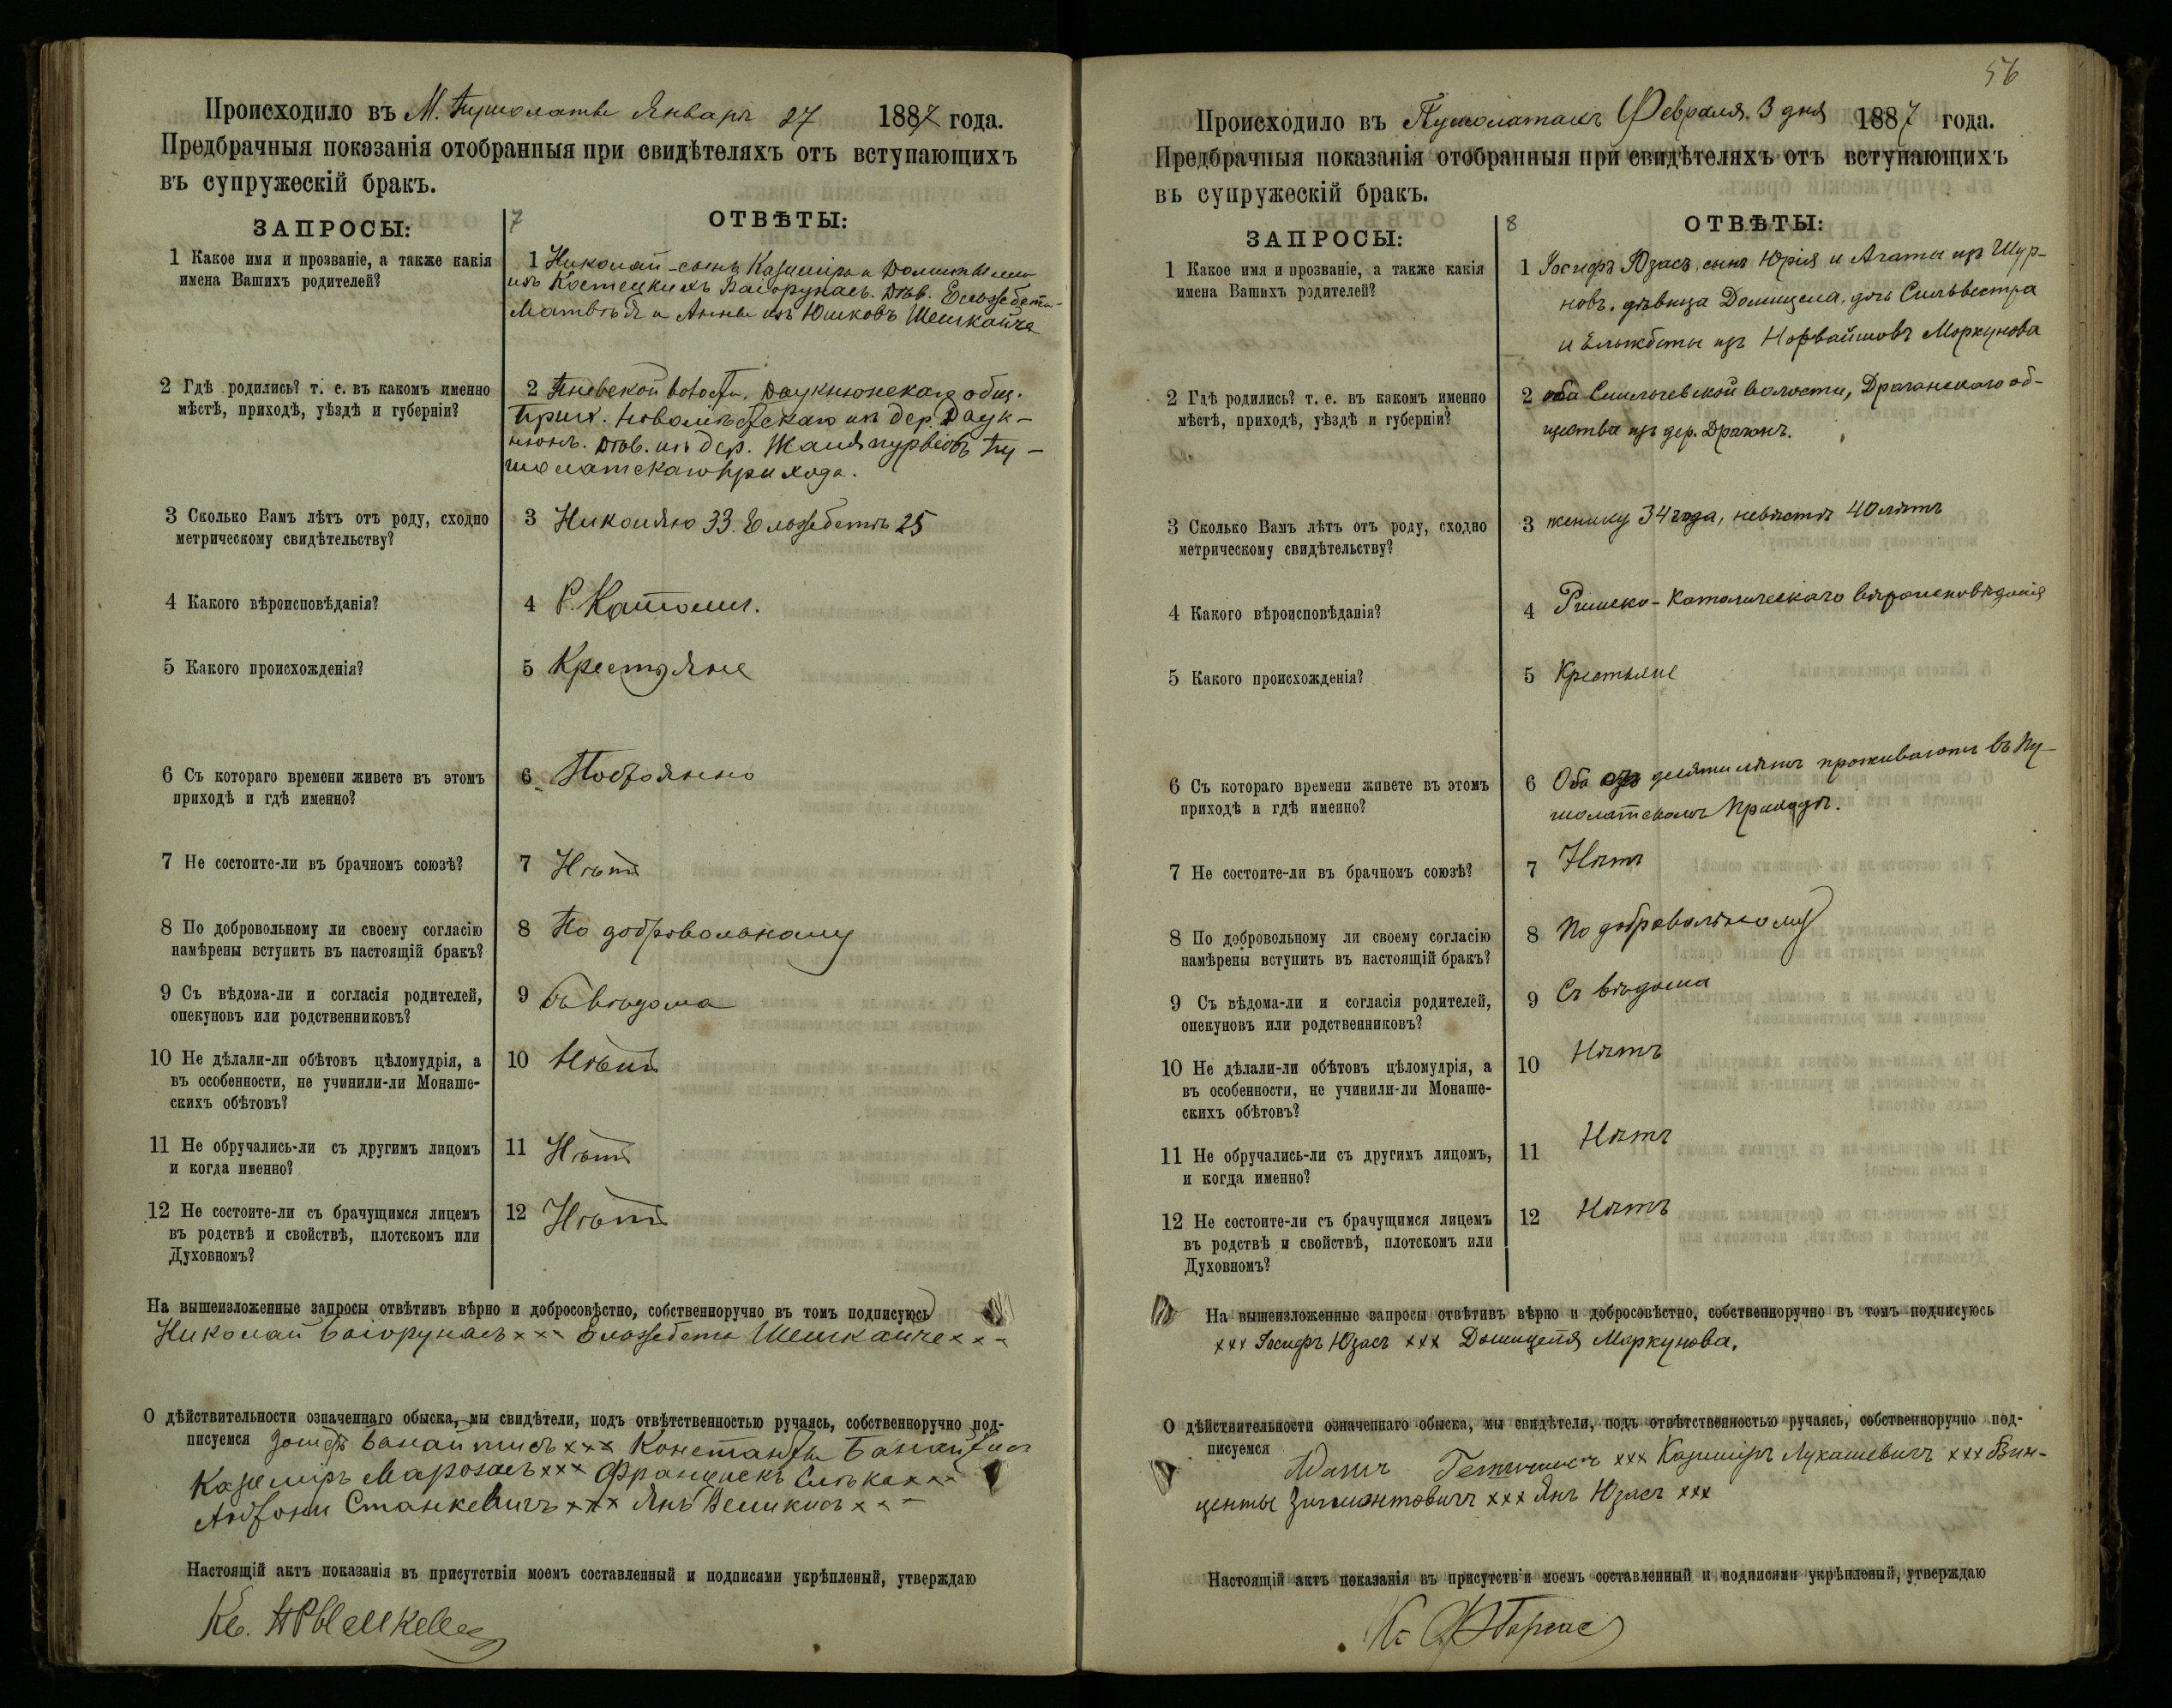 Происходило въ М. Пушолаты Январь 27 1887 года.
Предбрачныя показанія отобранныя при свидѣтеляхъ отъ вступающихъ
въ супружескій бракъ.
7
ЗАПРОСЫ:
ОТВѢТЫ:
1 Какое имя и прозваніе, а также какія
имена Вашихъ родителей?
1 Николай сынъ Казиміра и
изъ
Матвѣя и Анны изъ Юшковъ Шешкайче
2 Гдѣ родились? т. е. въ какомъ именно
мѣстѣ, приходѣ, уѣздѣ и губерніи?
2 волости, общ.
изъ дер. Даук-
нюнъ. Дѣв. изъ дер. Пу-
шолатскаго прихода.
3 Сколько Вамъ лѣтъ отъ роду, сходно
метрическому свидѣтельству?
3 Николаю 33. 25
4 Какого вѣроисповѣданія?
4 Р. Католич.
5 Какого происхожденія?
5 Крестьяне
6 Съ котораго времени живете въ этомъ
приходѣ и гдѣ именно?
6 Постоянно
7 Не состоите-ли въ брачномъ союзѣ?
7 Нѣтъ
8 По добровольному ли своему согласію
намѣрены вступить въ настоящій бракъ?
8 По добровольному
9 Съ вѣдома-ли и согласія родителей,
опекуновъ или родственниковъ?
9 Съ вѣдома
10 Не дѣлали-ли обѣтовъ цѣломудрія, а
въ особенности, не учинили-ли Монаше-
скихъ обѣтовъ?
10 Нѣтъ
11 Не обручались-ли съ другимъ лицомъ
и когда именно?
11 Нѣтъ
12 Не состоите-ли съ брачущимся лицемъ
въ родствѣ и свойствѣ, плотскомъ или
Духовномъ?
12 Нѣтъ
На вышеизложенные запросы отвѣтивъ вѣрно и добросовѣстно, собственноручно въ томъ подписуюсь
Николай Вагорунасъ ××× Шешкайче ×××
О дѣйствительности означеннаго обыска, мы свидѣтели, подъ отвѣтственностью ручаясь, собственноручно под-
писуемся ××× Константы
Казиміръ Марозасъ ××× Францискъ ×××
Антони Станкевичъ ××× Янъ ×××
Настоящій актъ показанія въ присутствіи моемъ составленный и подписями укрѣпленый, утверждаю
Кс.
56
Происходило въ Пушолатахъ Февраля 3 дня 1887 года.
Предбрачныя показанія отобранныя при свидѣтеляхъ отъ вступающихъ
въ супружескій бракъ.
8
ЗАПРОСЫ:
ОТВѢТЫ:
1 Какое имя и прозваніе, а также какія
имена Вашихъ родителей?
1 Іосифъ Юзасъ, сынъ Юрія и Агаты изъ Шур-
новъ. дѣвица Домицела, дочь Сильвестра
и Ельжбеты изъ Норвайшовъ Моркунова
2 Гдѣ родились? т. е. въ какомъ именно
мѣстѣ, приходѣ, уѣздѣ и губерніи?
2 оба Смильгевской волости, Драганскаго об-
щества изъ дер. Драганъ.
3 Сколько Вамъ лѣтъ отъ роду, сходно
метрическому свидѣтельству?
3 жениху 34 года, невѣстѣ 40 лѣтъ
4 Какого вѣроисповѣданія?
4 Римско-Католическаго вѣроисповѣданія
5 Какого происхожденія?
5 Крестьяне
6 Съ котораго времени живете въ этомъ
приходѣ и гдѣ именно?
6 Оба десяти лѣтъ проживаютъ въ Пу-
шолатскомъ Приходѣ.
7 Не состоите-ли въ брачномъ союзѣ?
7 Нѣтъ
8 По добровольному ли своему согласію
намѣрены вступить въ настоящій бракъ?
8 По добровольному
9 Съ вѣдома-ли и согласія родителей,
опекуновъ или родственниковъ?
9 Съ вѣдома
10 Не дѣлали-ли обѣтовъ цѣломудрія, а
въ особенности, не учинили-ли Монаше-
скихъ обѣтовъ?
10 Нѣтъ
11 Не обручались-ли съ другимъ лицомъ,
и когда именно?
11 Нѣтъ
12 Не состоите-ли съ брачущимся лицемъ
въ родствѣ и свойствѣ, плотскомъ или
Духовномъ?
12 Нѣтъ
На вышеизложенные запросы отвѣтивъ вѣрно и добросовѣстно, собственноручно въ томъ подписуюсь
××× Іосифъ Юзасъ ××× Домицеля Моркунова.
О дѣйствительности означеннаго обыска, мы свидѣтели, подъ отвѣтственностью ручаясь, собственноручно под-
писуемся Адамъ ××× Казиміръ Лукашевичъ ××× Вин-
центы Зигмонтовичъ ××× Янъ Юзасъ ×××
Настоящій актъ показанія въ присутствіи моемъ составленный и подписями укрѣпленый, утверждаю
Кс.